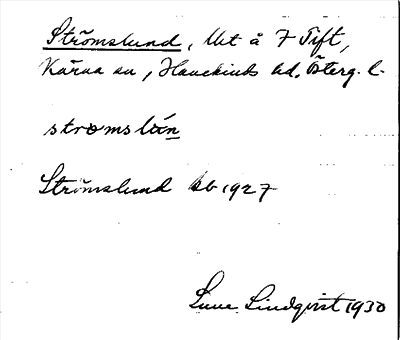 Strömslund, Ut å 7 Tift,
Kärna sn, Hanekinds hd. Österg. l.
strömslún
Strömslund kb 1927
Sune Lindqvist 1930